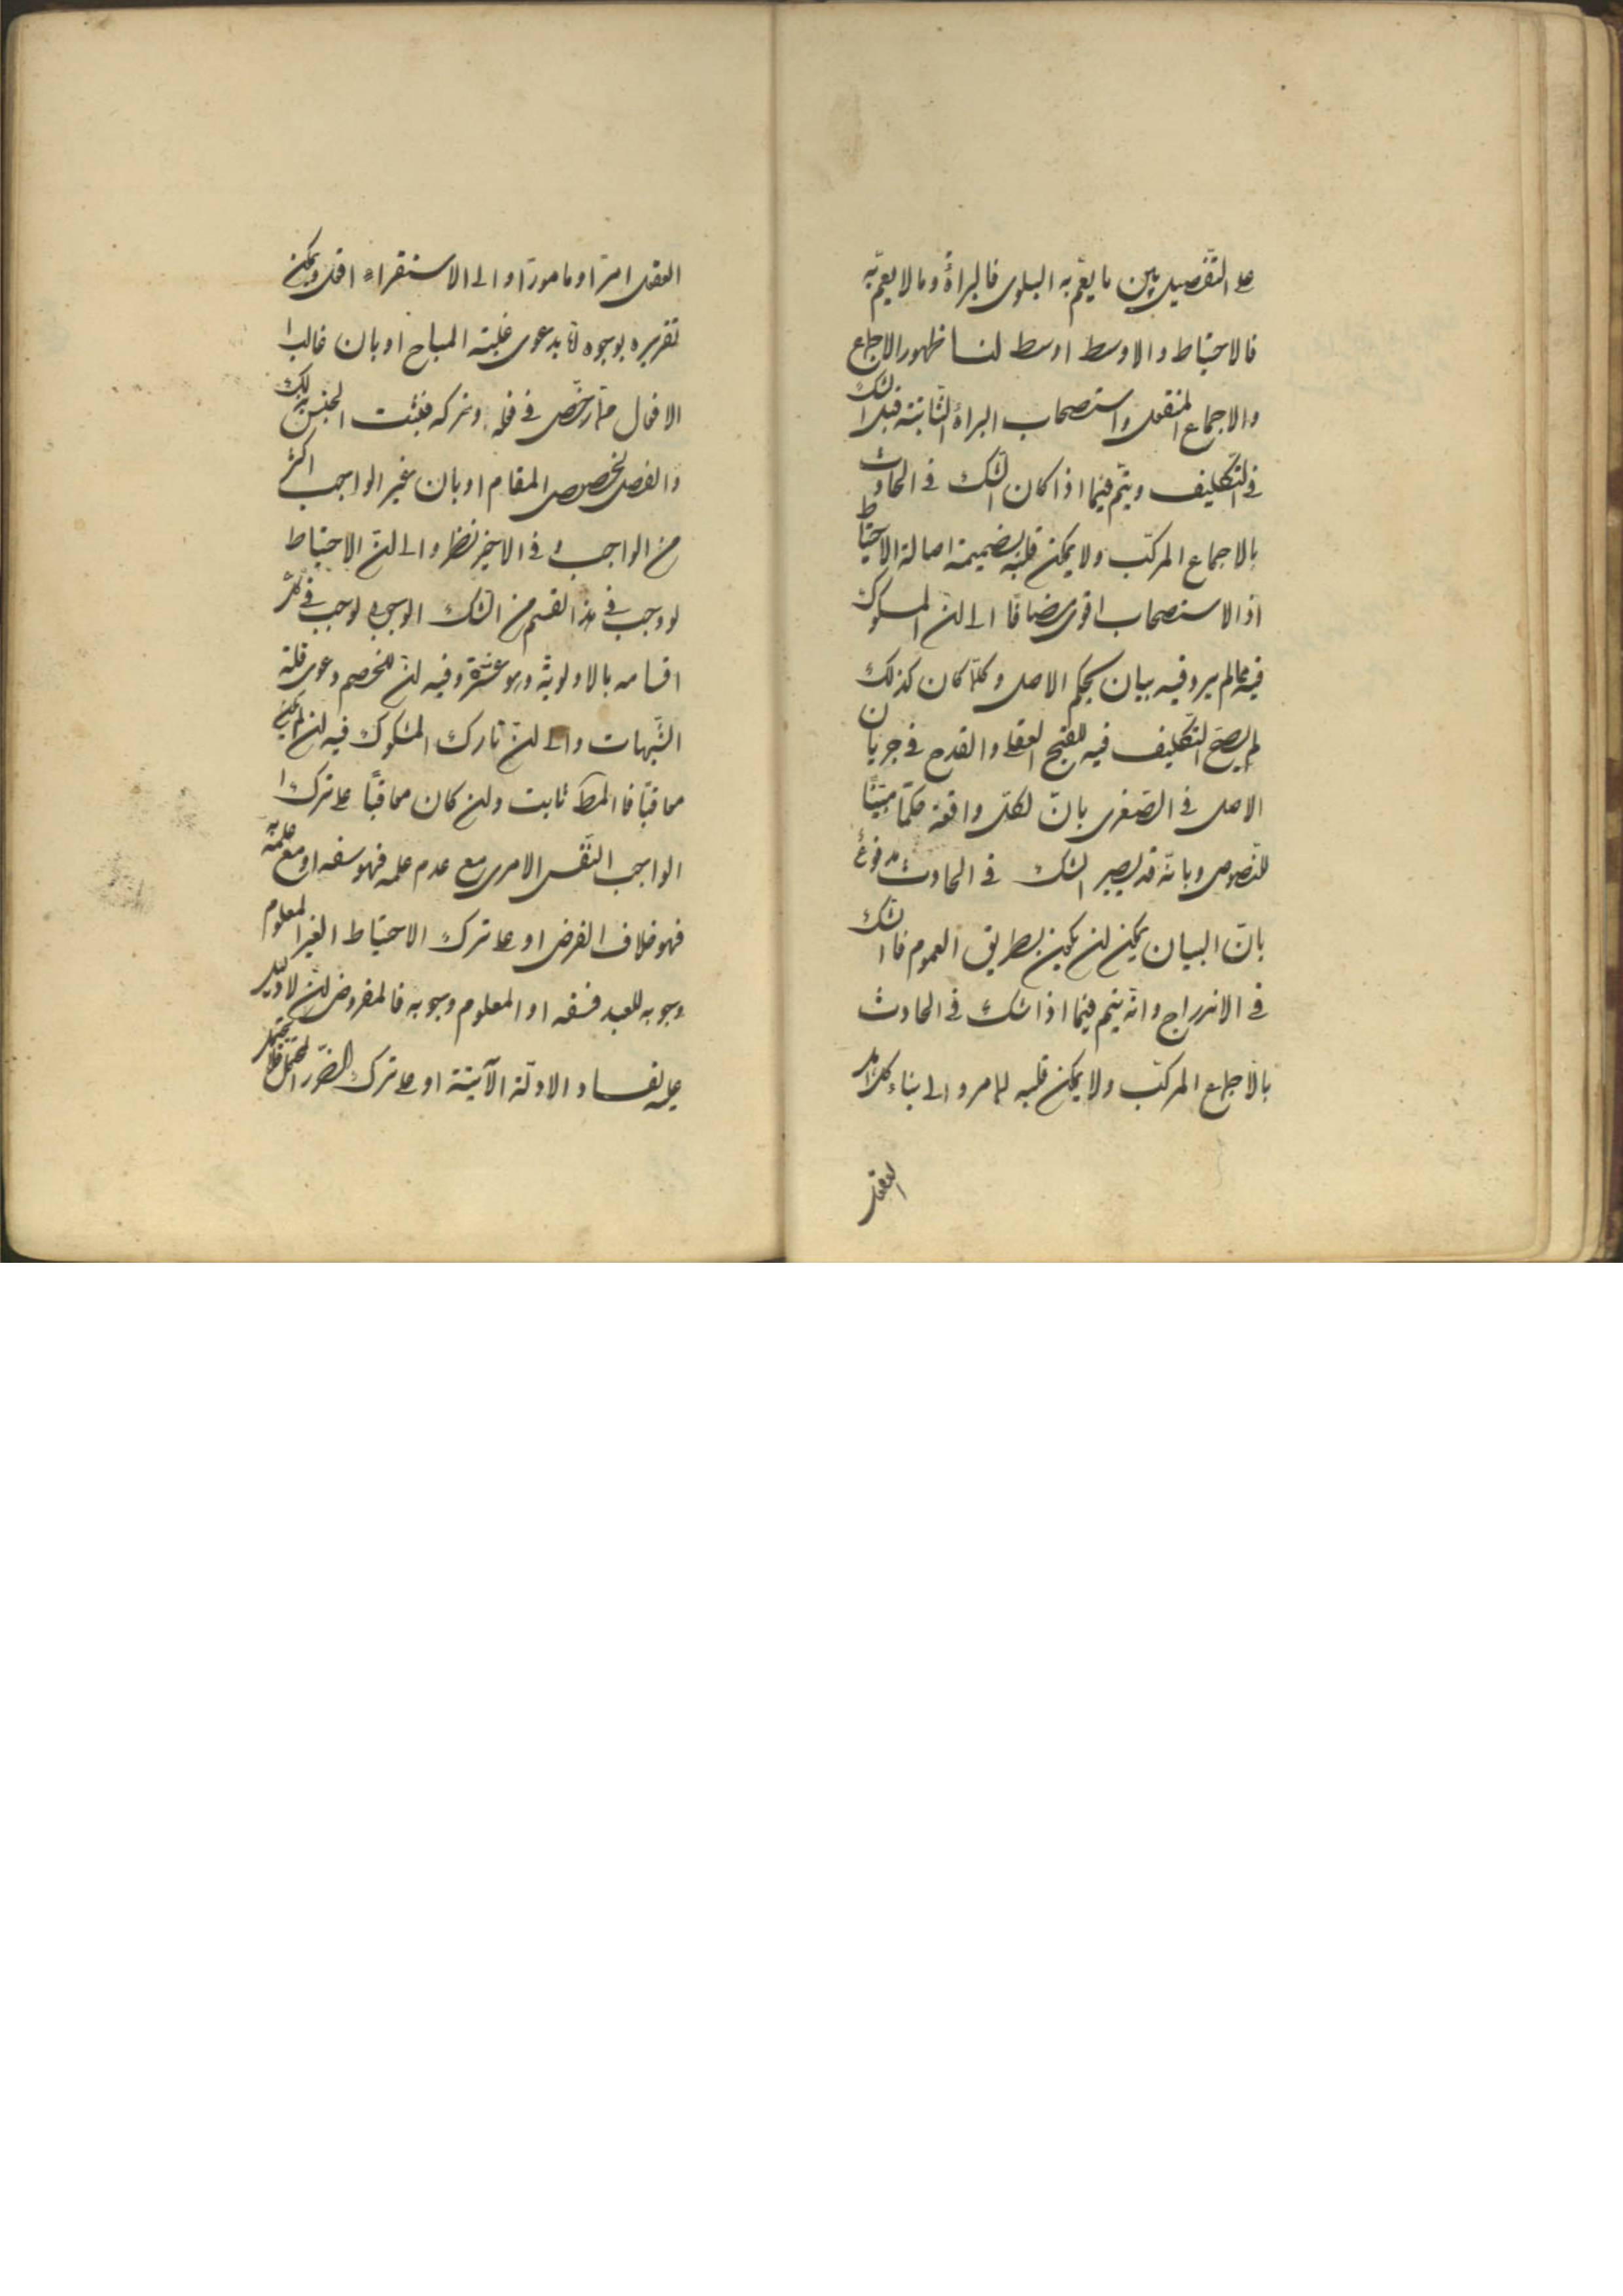 على التفصيل بين ما يعمّ به البلوى فالبراءة وما لا يعمّ به
فالاحتياط والاوسط اوسط لنا ظهور الاجماع
والاجماع المنقول واستصحاب البراءة الثابتة قبل الشك
فى التكليف ويتم فيما اذا كان الشك فى الحادث
بالاجماع المركّب ولا يمكن قلبه بضميمة اصالة الاحتياط
اذ الاستصحاب اقوى مضافا الى ان المشكوك
فيه مما لم يرد فيه بيان بحكم الاصل وكلّما كان كذلك
لم يصحّ التكليف فيه للقبح العقلى والقدح فى جريان
الاصل فى الصّغرى بانّ لكلّ واقعة حكمًا مبيّنًا
للنّصوص وبانّه قد يصير الشك فى الحادث مدفوع
بانّ البيان يمكن ان يكون بطريق العموم فالشك
فى الاندراج وانّه يتم فيما اذا شك فى الحادث
بالاجماع المركّب ولا يمكن قلبه لما مر والى بناء
العقل
العقل امرًا ومامورًا والى الاستقراء ويمكن
تقريره بوجوه بدعوى غلبة المباح او بان غالب
الافعال ممّا رخّص فى فعله وتركه فيثبت الجنس بذلك
والفصل لخصوص المقام او بان غير الواجب اكثر
من الواجب وفى الاخير نظر والى انّ الاحتياط
لو وجب فى هذا القسم من الشك لوجب فى
اقسامه بالاولوية وهو عسر وفيه انّ للخصم دعوى قلة
الشّبهات والى انّ تارك المشكوك فيه ان لم يكن
معاقبًا فالمط ثابت وان كان معاقبًا على ترك
الواجب النّفس الامرى مع عدم علمه فهو سفه او مع علمه
فهو خلاف الفرض او على ترك الاحتياط الغير المعلوم
وجوبه للعبد فسفه او المعلوم وجوبه فالمفروض ان لا دليل
عليه لفساد الادلّة الآتية او على ترك الضّرر المحتمل